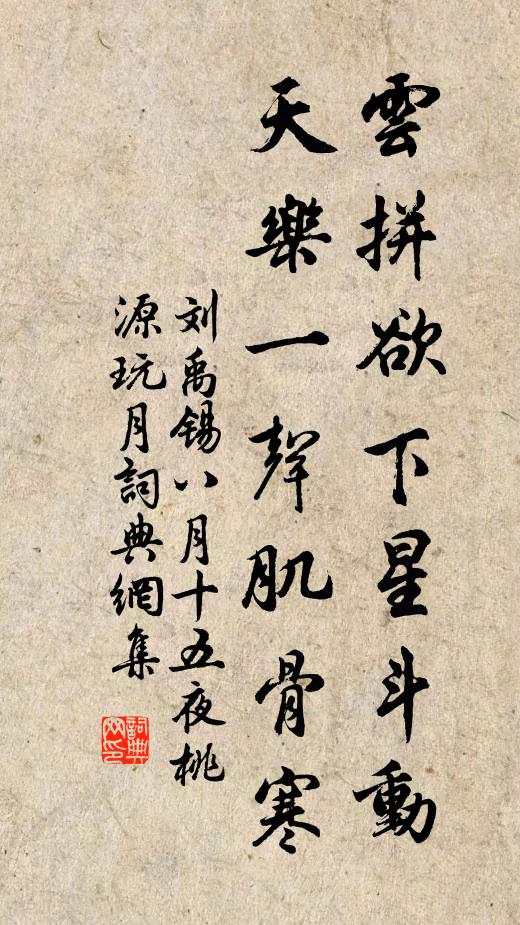 雲拼欲下星斗動
天樂一聲肌骨寒
刘禹錫八月十五夜桃
源玩月詞典網集
詞典网印